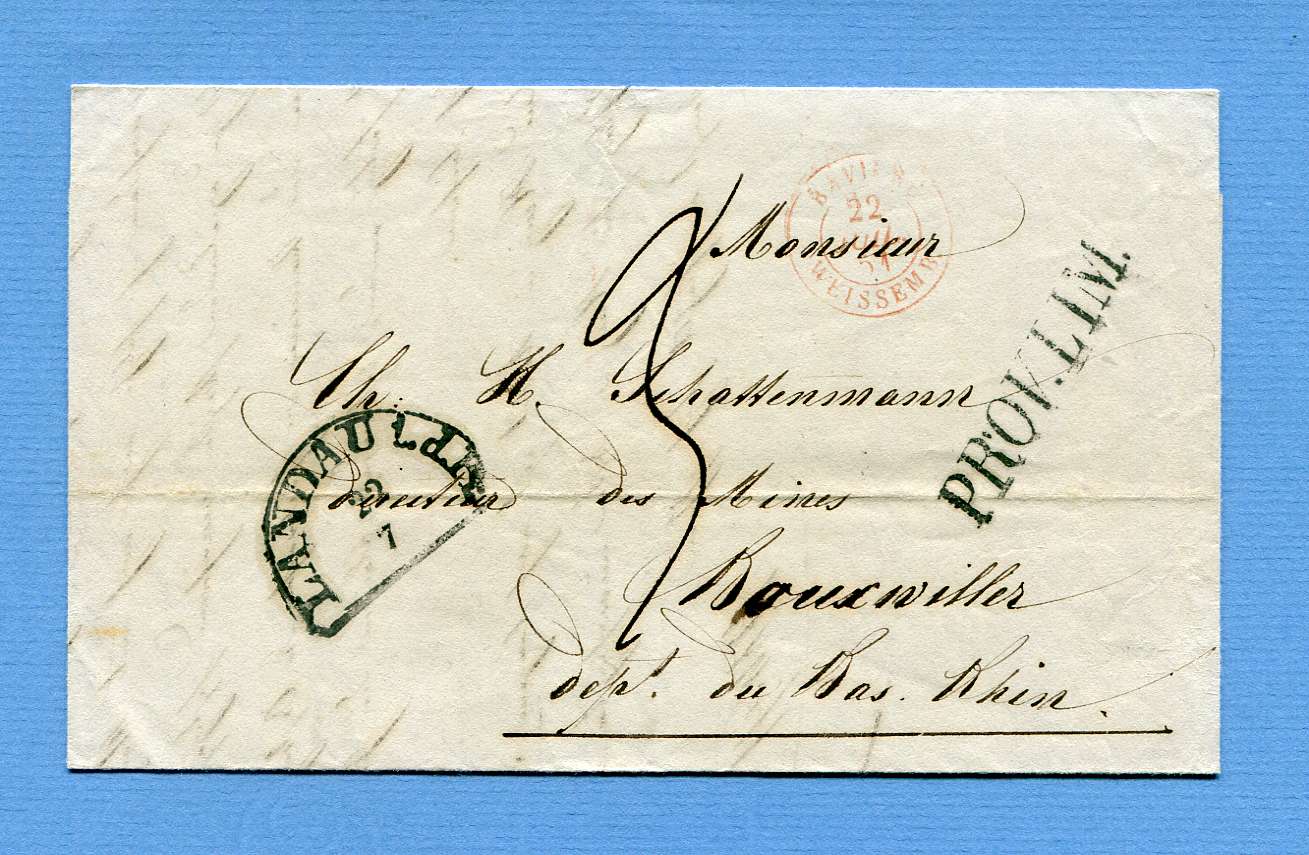 BAVIERE
22
JUIL
51
WEISSEMB
Monsieur
PROV. LIM.
Ch: H. Schattenmann
LANDAU i.d.P.
22
7
directeur des Mines
3
Bouxwiller
dept. du Bas. Rhin.